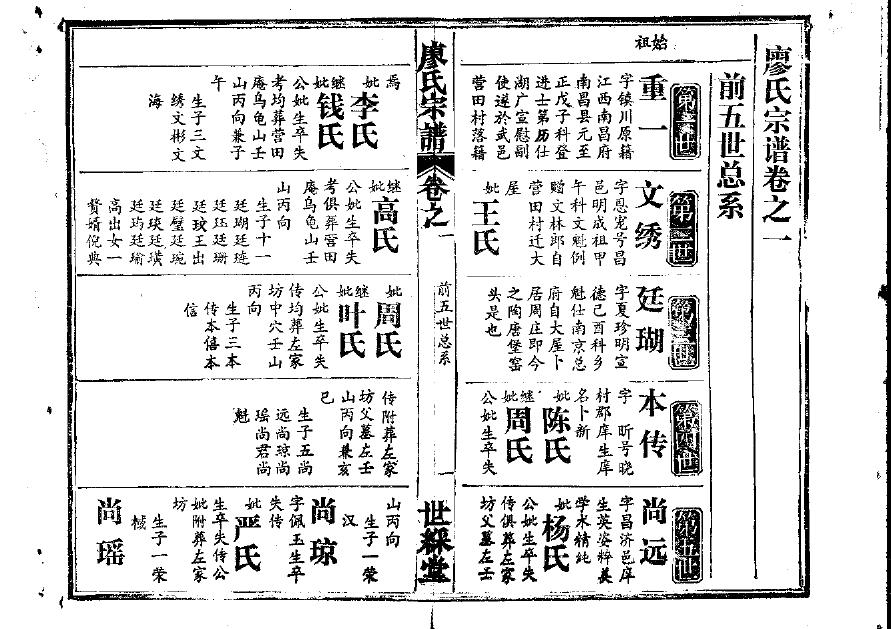 廖氏宗谱卷之一
前五世总系
始祖
第一世
重一
字镂川原籍
江西南昌府
南昌县元至
正戊子科登
进士第历仕
湖广宣慰副
使遂於武邑
营田村落籍
第二世
文绣
字恩宠号昌
邑明成祖甲
午科文魁例
赠文林郎自
营田村迁大
屋
妣王氏
第三世
廷瑚
字夏珍明宣
德己酉科乡
魁仕南京总
府自大屋卜
居周庄即今
之陶唐堡窑
头是也
第四世
本传
字 昕号晓
村郡庠生庠
名卜新
妣陈氏
继妣周氏
公妣生卒失
第五世
尚远
字昌济邑庠
生英姿粹美
学术精纯
妣杨氏
公妣生卒失
传俱葬左家
坊父墓左壬
廖氏宗谱
卷之一
前五世总系
世䌽堂
焉
妣李氏
继妣钱氏
公妣生卒失
考均葬营田
庵乌龟山壬
山丙向兼子
午
生子三文
绣文彬文
海
继妣高氏
公妣生卒失
考俱葬营田
庵乌龟山壬
山丙向
生子十一
廷瑚廷琏
廷珏廷珊
廷玫王出
廷璧廷琬
廷瑛廷璜
廷玙廷瑜
高出女一
赘婿倪典
妣周氏
继妣叶氏
公妣生卒失
传均葬左家
坊中穴壬山
丙向
生子三本
传本僖本
信
传附葬左家
坊父墓左壬
山丙向兼亥
巳
生子五尚
远尚琼尚
瑶尚君尚
魁
山丙向
生子一荣
汉
尚琼
字佩玉生卒
失传
妣严氏
生卒失传公
妣附葬左家
坊
生子一荣
棫
尚瑶